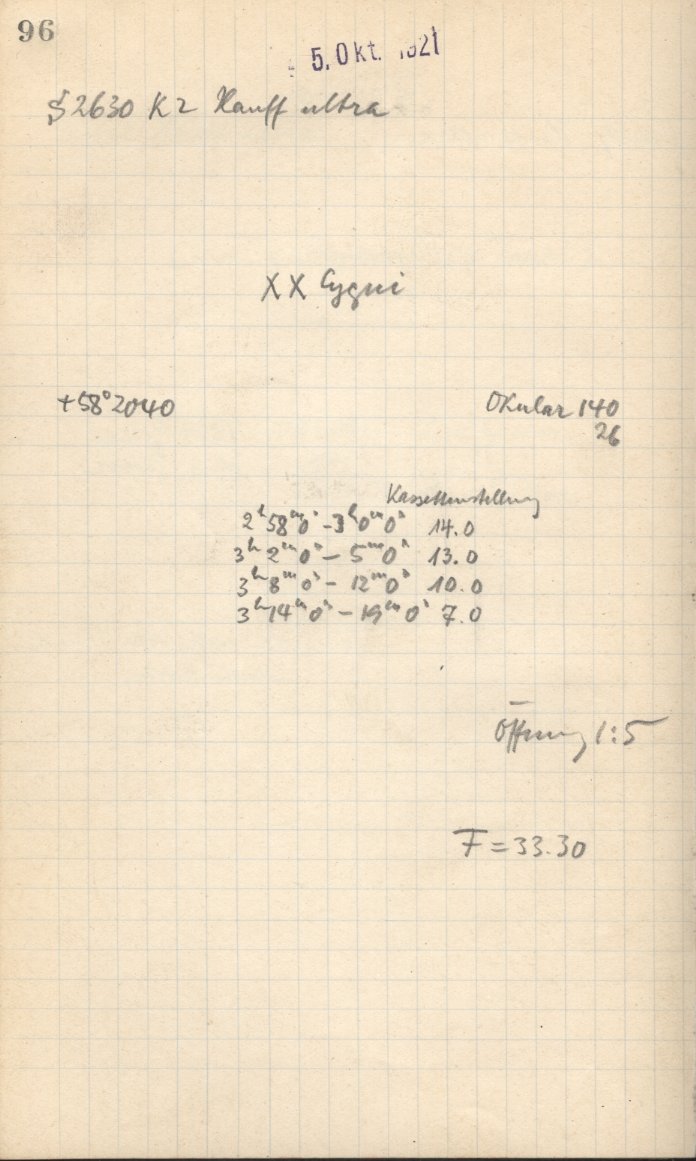 96
5. Okt. 1921
S 2630 K2 Hauff ultra
XX Cygni
+58°2040
Okular 140
26
Kassetteinstellung
2ʰ58ᵐ0ˢ - 3ʰ0ᵐ0ˢ 14.0
3ʰ2ᵐ0ˢ - 5ᵐ0ˢ 13.0
3ʰ8ᵐ0ˢ - 12ᵐ0ˢ 10.0
3ʰ14ᵐ0ˢ - 19ᵐ0ˢ 7.0
Öffnung 1:5
F = 33.30